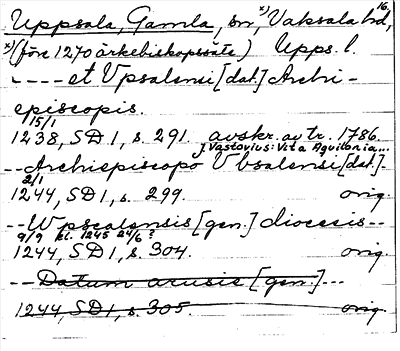 16.
Uppsala, Gamla, sn, x) Vaksala hd,
x) (före 1270 ärkebiskopssäte) Upps. l.
---- et Vpsalensi [dat.] Archi-
episcopis.
15/1
1238, SD 1, s. 291. avskr. av tr. 1786
J. Vastovius: Vita Aquilonia...
-- Archiepiscopo Vbsalensi [dat.]
2/1
1244, SD 1, s. 299. orig.
-- Wpscalensis [gen.] diocesis --
9/9 kl. 1245 24/6 ?
1244, SD 1, s. 304. orig.
-- Datum arusie [gen.] ...
1244, SD 1, s. 305. orig.